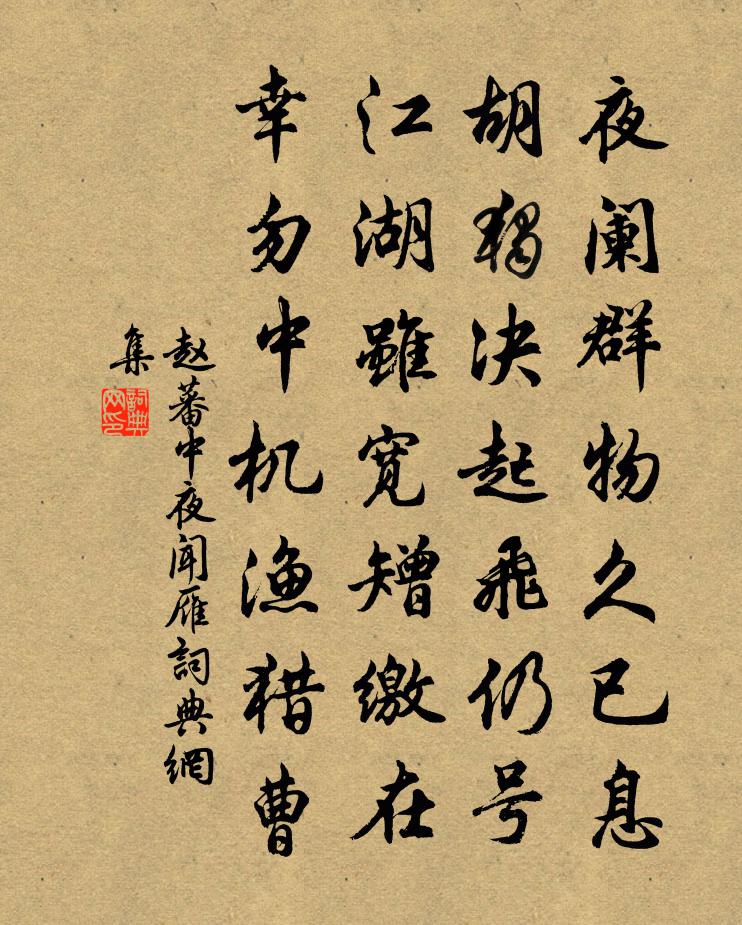 夜阑群物久已息
胡独决起飞仍号
江湖雖宽矰缴在
幸勿中机渔猎曹
赵蕃中夜闻雁詞典網
集
詞典网印